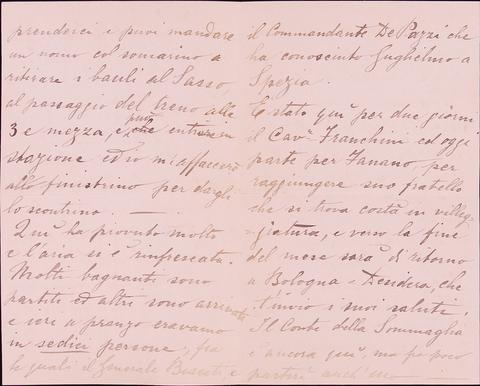 prenderci e puoi mandare
un uomo col somarino a
ritirare i bauli al Sasso,
al passaggio del treno alle
3 e mezza, e può che entrare in
stazione ed io mi affaccerò
allo finestrino per dargli
lo scontrino. —
Qui ha piovuto molto
e l'aria si è rinfrescata.
Molti bagnanti sono
partiti ed altri sono arrivati
e ieri a pranzo eravamo
in sedici persone, fra
le quali il Generale e
il Commandante De Pazzi che
ha conosciuto Guglielmo a
Spezia.
È stato qui per due giorni
il Cavr Franchini ed oggi
parte per Fanano, per
raggiungere suo fratello
che si trova costà in villeg-
giatura, e verso la fine
del mese sarà di ritorno
a Bologna - Desidera, che
t'invio i suoi saluti.
Il Conte della Sommaglia
è ancora quì, ma fra poco
partirà anch'esso